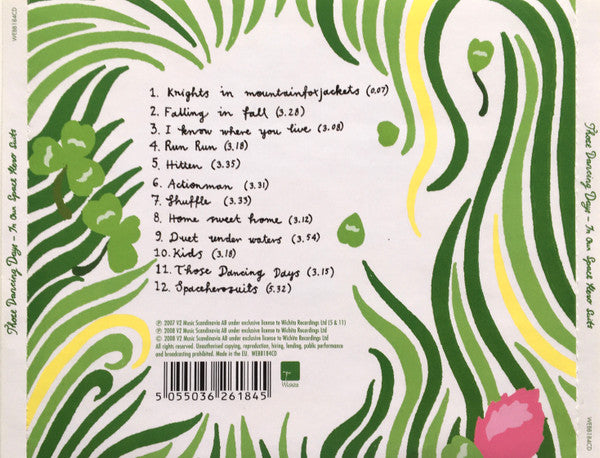 WEBB184CD
1. Knights in mountainfoxjackets (0.07)
2. Falling in fall (3.28)
3. I know where you live (3.08)
4. Run Run (3.18)
5. Hitten (3.35)
6. Actionman (3.31)
7. Shuffle (3.33)
8. Home sweet home (3.12)
9. Duet under waters (3.54)
10. Kids (3.18)
11. Those Dancing Days (3.15)
12. Spaceherosuits (5.32)
℗ 2007 V2 Music Scandinavia AB under exclusive license to Wichita Recordings Ltd (5 & 11)
℗ 2008 V2 Music Scandinavia AB under exclusive license to Wichita Recordings Ltd
© 2008 V2 Music Scandinavia AB under exclusive license to Wichita Recordings Ltd
All rights reserved. Unauthorised copying, reproduction, hiring, lending, public performance
and broadcasting prohibited. Made in the EU. WEBB184CD
5 055036 261845
Wichita
Those Dancing Days – In Our Space Hero Suits
Those Dancing Days – In Our Space Hero Suits
WEBB184CD